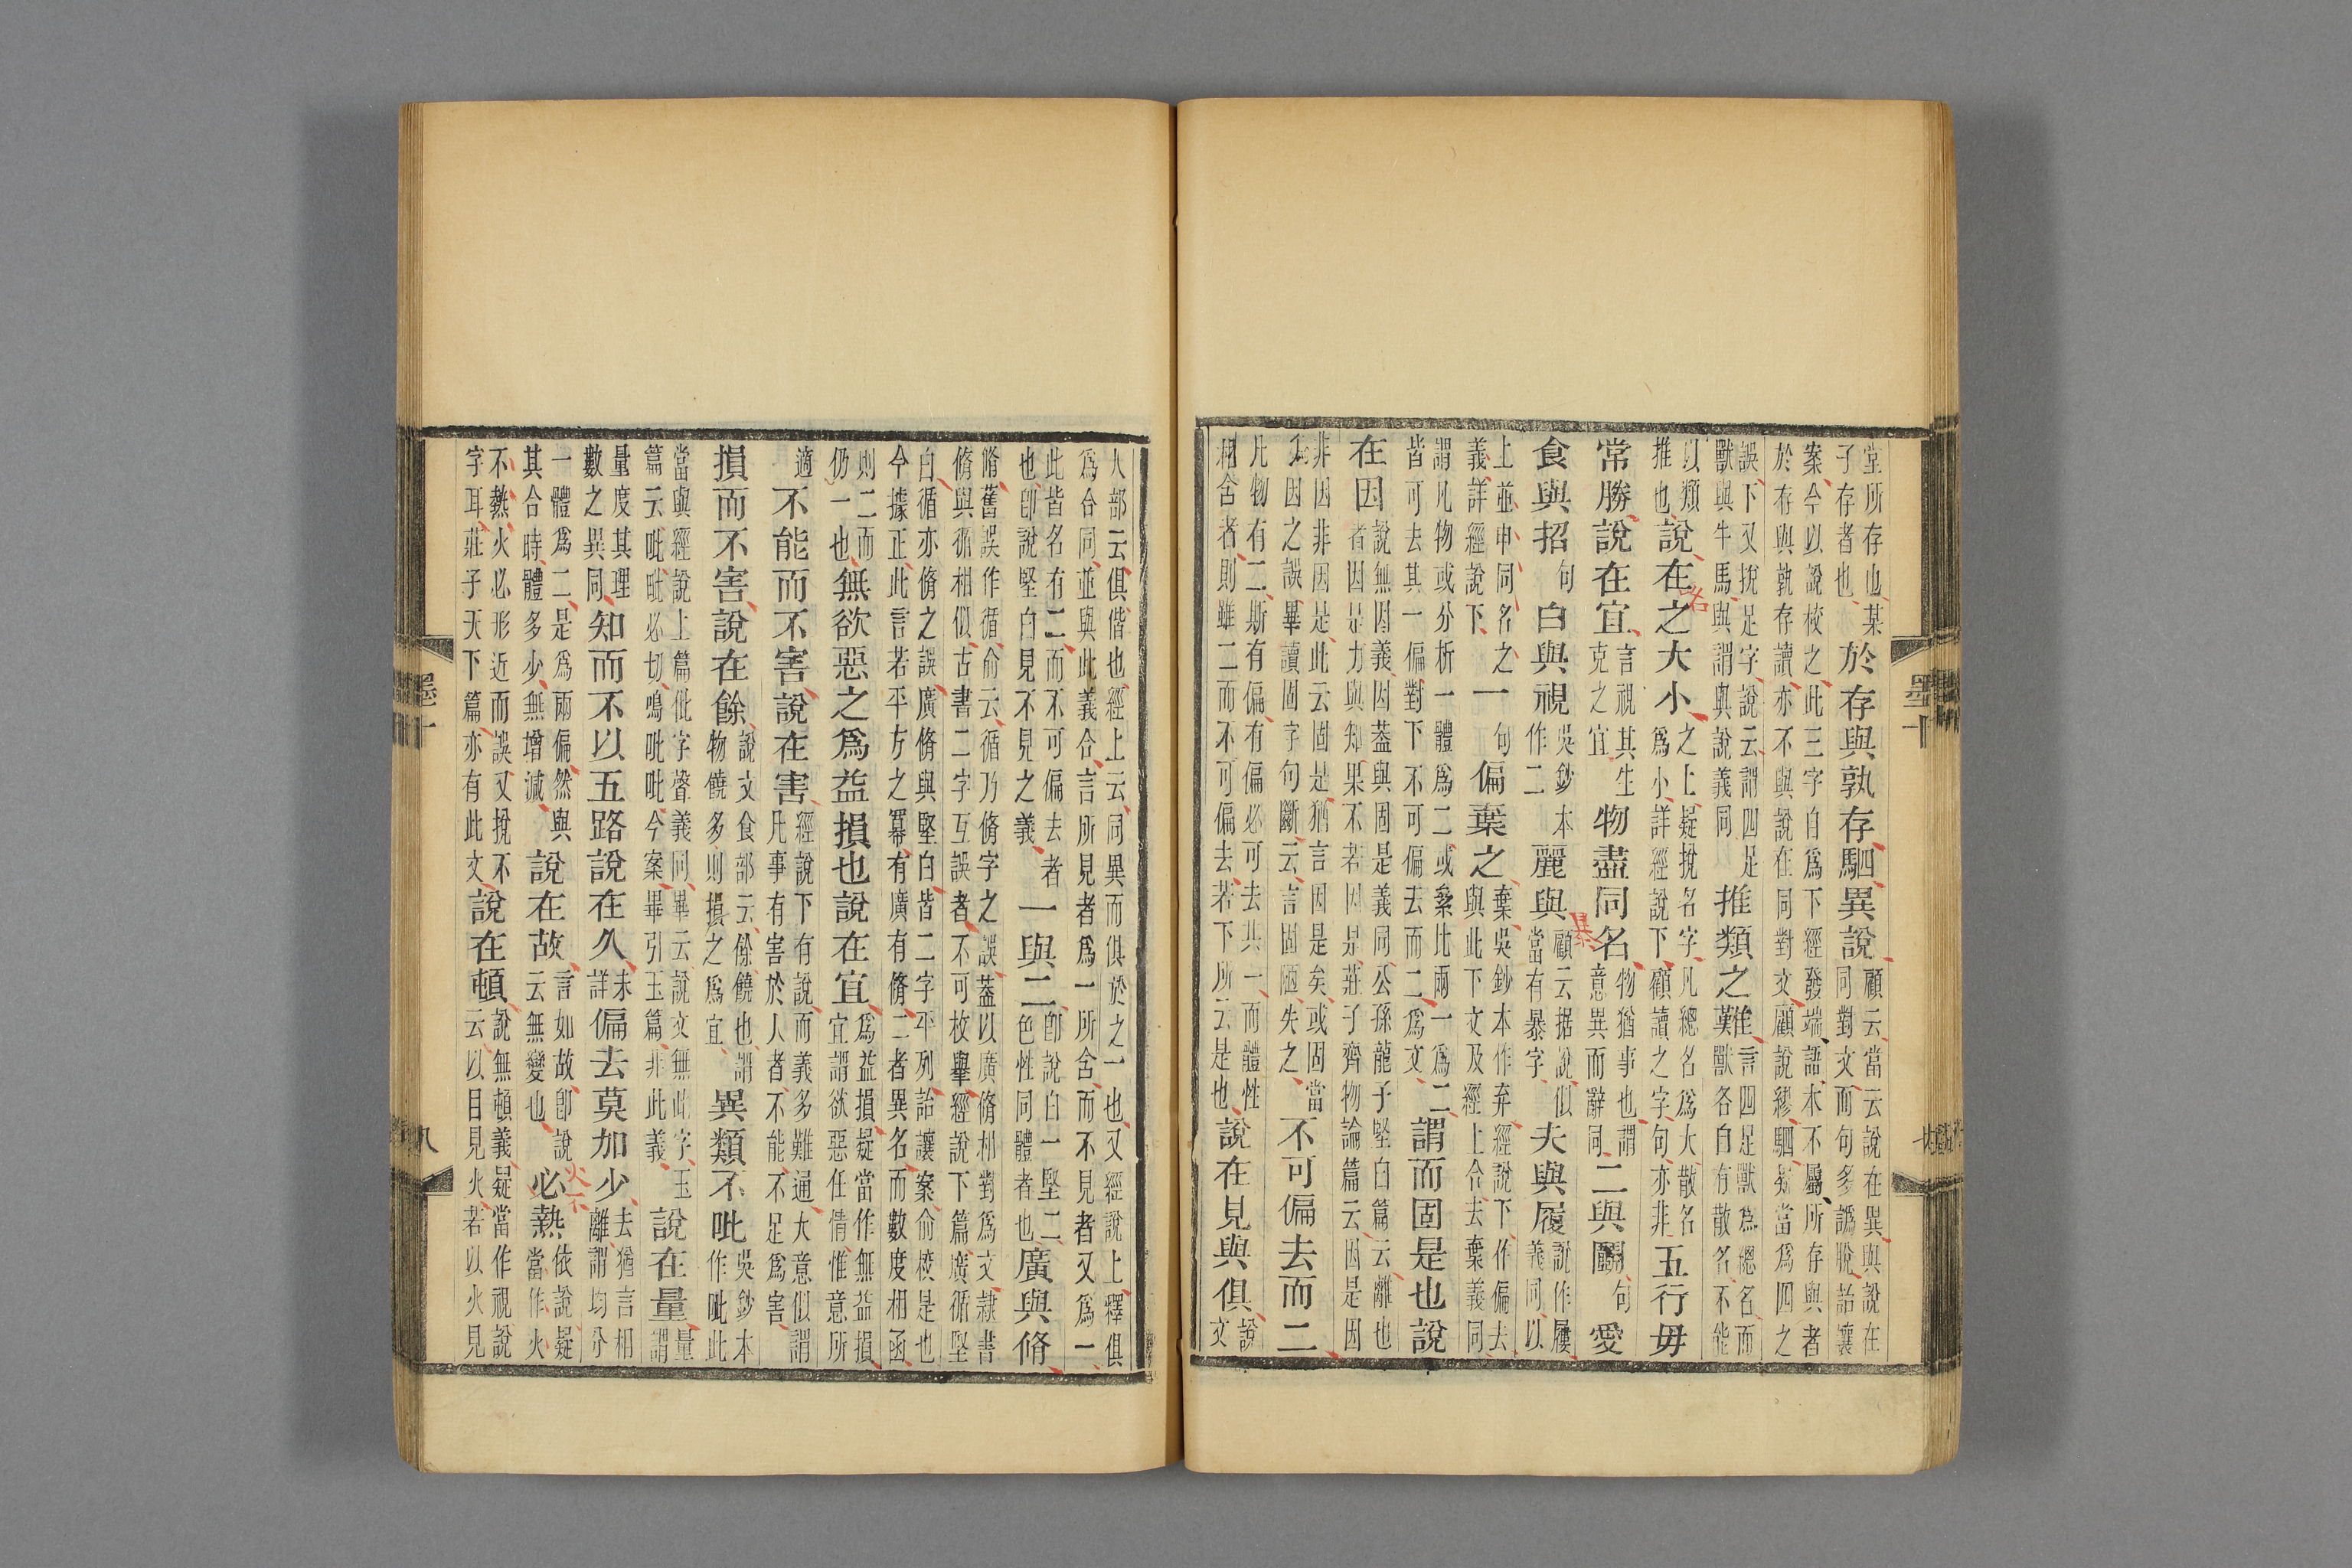 堂所存也某子存者也於存與孰存駟異說顧云當云說在異與說在同對文而句多譌脫詒讓
案今以說校之此三字自爲下經發端語木不屬所存與者於存與孰存讀亦不與說在同對文顧說繆駟疑當爲四之
誤下又挩足字說云謂四足獸與牛馬與謂與說義同推類之難言四足獸爲總名而獸各自有散名不能
以類推也說在名之大小之上疑挩名字凡總名爲大散名爲小詳經說下顧讀之字句亦非五行毋
常勝說在宜言視其生克之宜物盡同名物猶事也謂意異而辭同二與鬬句愛
食與招句白與視吳鈔本作二麗與暴顧云据說似當有暴字夫與履說作屨義同以
上並申同名之義詳經說下一句偏棄之棄吳鈔本作弃經說下作偏去與此下文及經上合去棄義同
謂凡物或分析一體爲二或絫比兩一爲二皆可去其一偏對下不可偏去而二爲文謂而固是也說
在因說無因義因蓋與固是義同公孫龍子堅白篇云離也者因是力與知果不若因是莊子齊物論篇云因是因
非因非因是此云固是猶言因是矣或固當爲因之誤畢讀固字句斷云言固陋失之不可偏去而二
凡物有二斯有偏有偏必可去其一而體性相含者則雖二而不可偏去若下所云是也說在見與俱說文
墨十
人部云俱偕也經上云同異而俱於之一也又經說上釋俱爲合同並與此義合言所見者爲一所舍而不見者又爲一
此皆名有二而不可偏去者也卽說堅白見不見之義一與二卽說白一堅二色性同體者也廣與脩
脩舊誤作循俞云循乃脩字之誤蓋以廣脩相對爲文隸書脩與循相似古書二字互誤者不可枚舉經說下篇廣循堅
白循亦脩之誤廣脩與堅白皆二字平列詒讓案俞校是也今據正此言若平方之冪有廣有脩二者異名而數度相函
則二而仍一也無欲惡之爲益損也說在宜爲益損疑當作無益損宜謂欲惡任情惟意所
適不能而不害說在害經說下有說而義多難通大意似謂凡事有害於人者不能不足爲害
損而不害說在餘說文食部云餘饒也謂物饒多則損之爲宜異類不吡吳鈔本作吡此
當與經說上篇仳字聲義同畢云說文無此字玉篇云吡毗必切鳴吡吡今案畢引玉篇非此義說在量量謂
量度其理數之異同知而不以五路說在久未詳偏去莫加少去猶言相離謂均分
一體爲二是爲兩偏然與其合時體多少無增減說在故言如故卽說云無變也必火不熱依說疑當作火
不熱火必形近而誤又挩不字耳莊子天下篇亦有此文說在頓說無頓義疑當作視說云以目見火若以火見
墨十
八